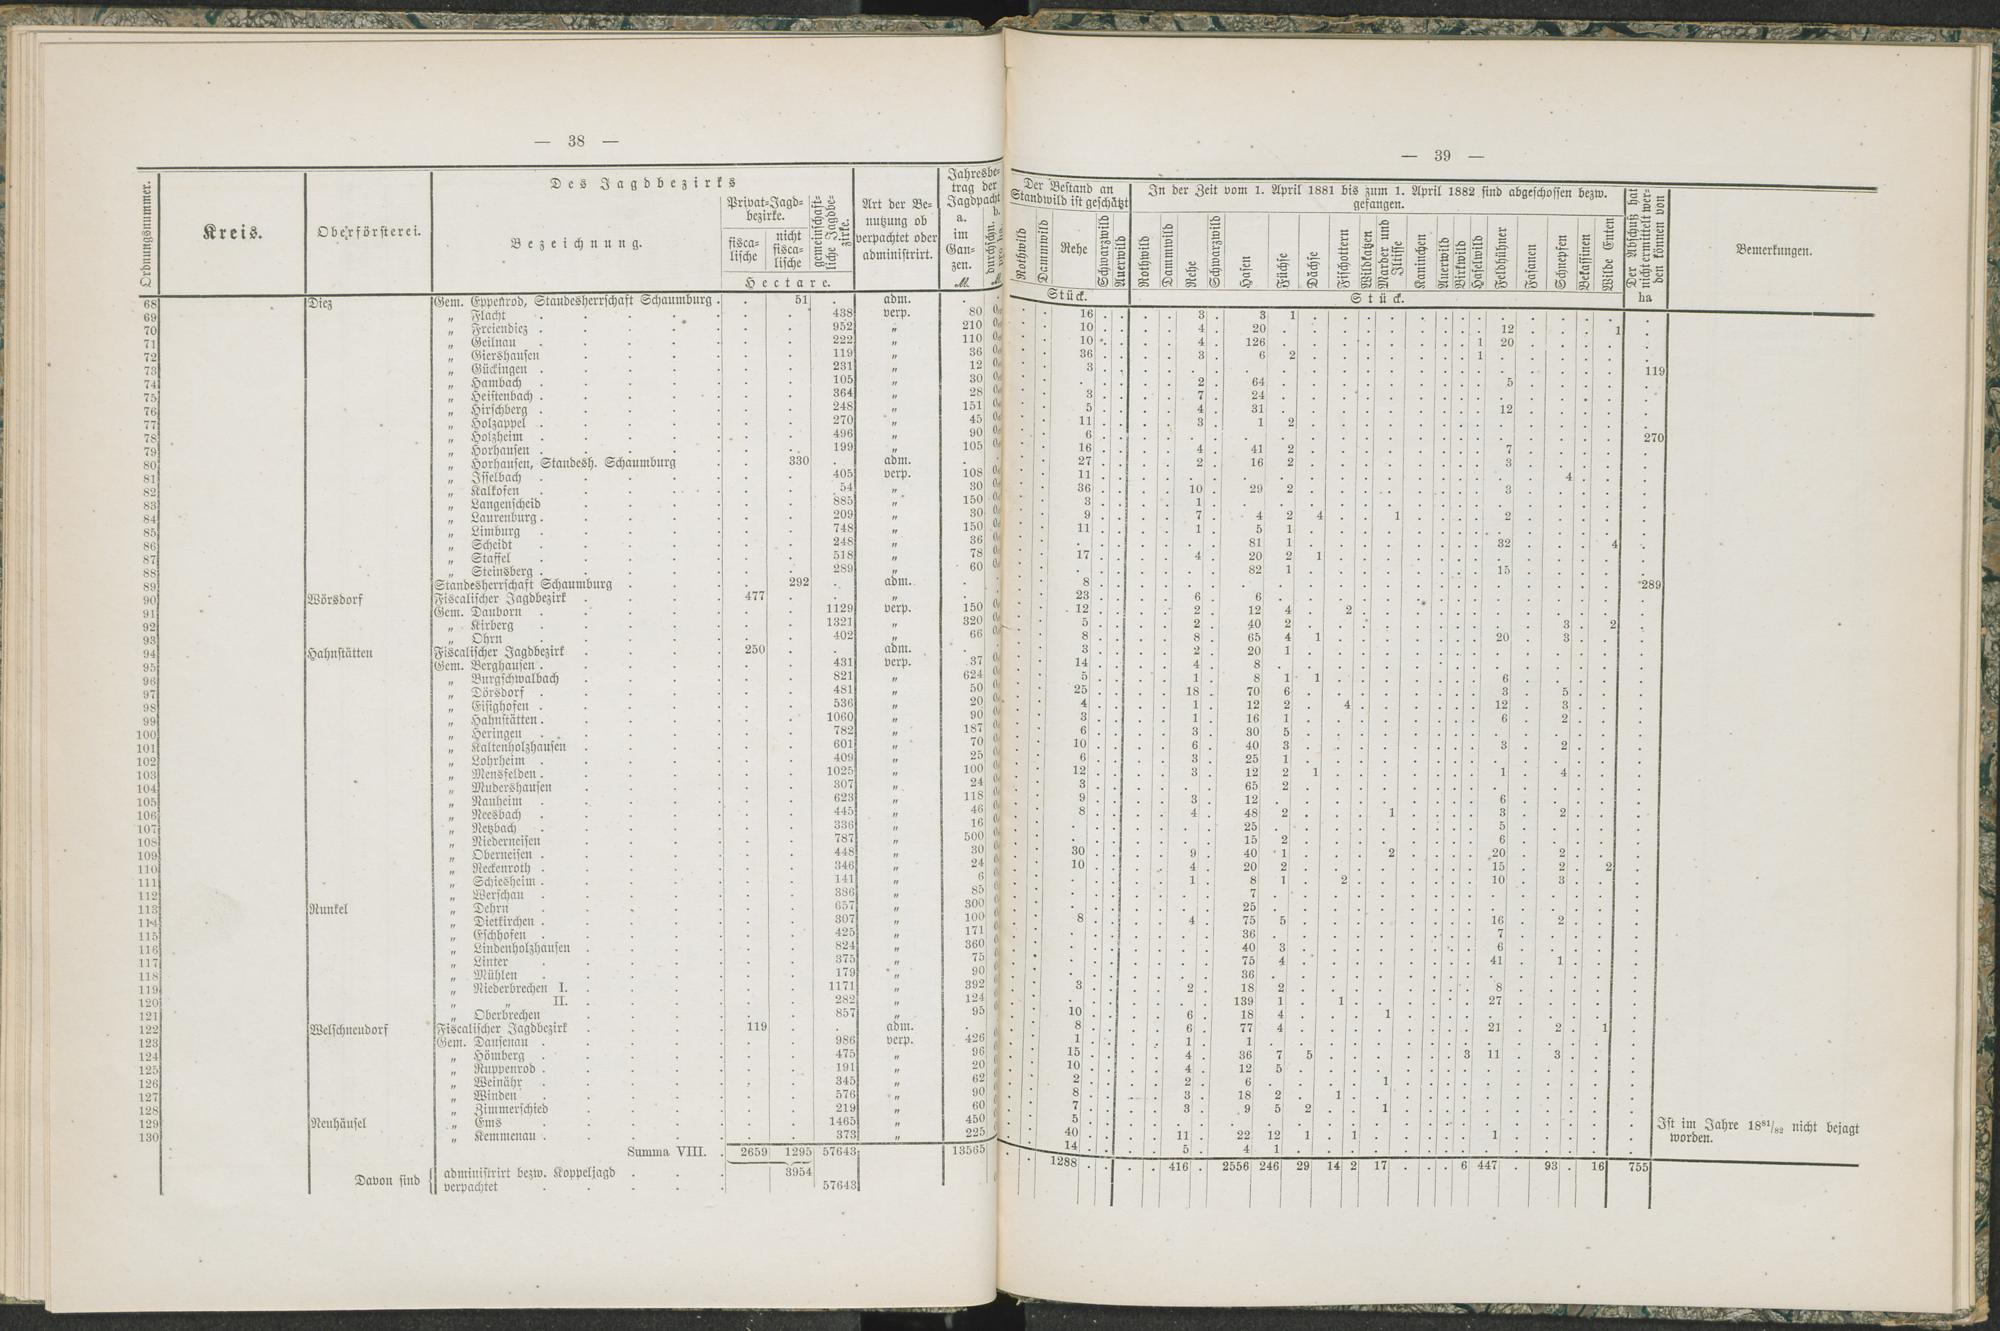 — 38 —
Ordnungsnummer.
Kreis.
Oberförsterei.
Des Jagdbezirks
Bezeichnung.
Privat-Jagd-
bezirke.
fisca-
lische
nicht
fisca-
lische
gemeinschaft-
liche Jagdbe-
zirke.
Hectare.
Art der Be-
nutzung ob
verpachtet oder
administrirt.
Jahresbe-
trag der
Jagdpacht
a.
im
Gan-
zen.
M.
68 Diez Gem. Eppenrod, Standesherrschaft Schaumburg . . 51 . adm. .
69 „ Flacht . . 438 verp. 80
70 „ Freiendiez . . . 952 „ 210
71 „ Geilnau . . 222 „ 110
72 „ Giershausen . . 119 „ 36
73 „ Gückingen . . . 231 „ 12
74 „ Hambach . . . 105 „ 30
75 „ Heistenbach . . . 364 „ 28
76 „ Hirschberg . . . 248 „ 151
77 „ Holzappel . . . 270 „ 45
78 „ Holzheim . . . 496 „ 90
79 „ Horhausen . . . 199 „ 105
80 „ Horhausen, Standesh. Schaumburg . 330 . adm. .
81 „ Isselbach . . . 405 verp. 108
82 „ Kalkofen . . . 54 „ 30
83 „ Langenscheid . . 885 „ 150
84 „ Laurenburg . . . 209 „ 30
85 „ Limburg . . . 748 „ 150
86 „ Scheidt . . . 248 „ 36
87 „ Staffel . . . 518 „ 78
88 „ Steinsberg . . . 289 „ 60
89 Standesherrschaft Schaumburg . . 292 . adm. .
90 Wörsdorf Fiscalischer Jagdbezirk . 477 . . „ .
91 Gem. Dauborn . . . 1129 verp. 150
92 „ Kirberg . . . 1321 „ 320
93 „ Ohrn . . . 402 „ 66
94 Hahnstätten Fiscalischer Jagdbezirk . 250 . . adm. .
95 Gem. Berghausen . . . 431 verp. 37
96 „ Burgschwalbach . . 821 „ 624
97 „ Dörsdorf . . . 481 „ 50
98 „ Eisighofen . . . 536 „ 20
99 „ Hahnstätten . . . 1060 „ 90
100 „ Heringen . . . 782 „ 187
101 „ Kaltenholzhausen . . 601 „ 70
102 „ Lohrheim . . . 409 „ 25
103 „ Mensfelden . . . 1025 „ 100
104 „ Mudershausen . . 307 „ 24
105 „ Nauheim . . . 623 „ 118
106 „ Neesbach . . . 445 „ 46
107 „ Netzbach . . . 336 „ 16
108 „ Niederneisen . . 787 „ 500
109 „ Oberneisen . . . 448 „ 30
110 „ Reckenroth . . . 346 „ 24
111 „ Schiesheim . . . 141 „ 6
112 „ Werschau . . . 386 „ 85
113 Runkel „ Dehrn . . . 657 „ 300
114 „ Dietkirchen . . . 307 „ 100
115 „ Eschhofen . . . 425 „ 171
116 „ Lindenholzhausen . . 824 „ 360
117 „ Linter . . . 375 „ 75
118 „ Mühlen . . . 179 „ 90
119 „ Niederbrechen I. . . 1171 „ 392
120 „ „ II. . . 282 „ 124
121 „ Oberbrechen . . 857 „ 95
122 Welschneudorf Fiscalischer Jagdbezirk . 119 . . adm. .
123 Gem. Dausenau . . . 986 verp. 426
124 „ Hömberg . . . 475 „ 96
125 „ Ruppenrod . . . 191 „ 20
126 „ Weinähr . . . 345 „ 62
127 „ Winden . . . 576 „ 90
128 „ Zimmerschied . . 219 „ 60
129 Neuhäusel „ Ems . . . 1465 „ 450
130 „ Kemmenau . . . 373 „ 225
Summa VIII. . 2659 1295 57643 13565
Davon sind { administrirt bezw. Koppeljagd . . . 3954
verpachtet . . . . 57643
— 39 —
Der Bestand an
Standwild ist geschätzt
Rothwild
Dammwild
Rehe
Schwarzwild
Auerwild
Stück.
In der Zeit vom 1. April 1881 bis zum 1. April 1882 sind abgeschossen bezw.
gefangen.
Rothwild
Dammwild
Rehe
Schwarzwild
Hasen
Füchse
Dächse
Fischottern
Wildkatzen
Marder und
Iltisse
Kaninchen
Auerwild
Birkwild
Haselwild
Feldhühner
Fasanen
Schnepfen
Bekassinen
Wilde Enten
Stück.
Der Abschuß hat
nicht ermittelt wer-
den können von
ha
Bemerkungen.
16 3 3 1
10 4 20 12 1
10 4 126 1 20
36 3 6 2 1
3 119
2 64 5
3 7 24
5 4 31 12
11 3 1 2
6 270
16 4 41 2 7
27 2 16 2 3
11 4
36 10 29 2 3
3 1
9 7 4 2 4 1 2
11 1 5 1
81 1 32 4
17 4 20 2 1
82 1 15
8 289
23 6 6
12 2 12 4 2
5 2 40 2 3 2
8 8 65 4 1 20 3
3 2 20 1
14 4 8
5 1 8 1 1 6
25 18 70 6 3 5
4 1 12 2 4 12 3
3 1 16 1 6 2
6 3 30 5
10 6 40 3 3 2
6 3 25 1
12 3 12 2 1 1 4
3 65 2
9 3 12 6
8 4 48 2 1 3 2
25 5
15 2 6
30 9 40 1 2 20 2
10 4 20 2 15 2 2
1 8 1 2 10 3
7
25
8 4 75 5 16 2
36 7
40 3 6
75 4 41 1
36
3 2 18 2 8
139 1 1 27
10 6 18 4 1
8 6 77 4 21 2 1
1 1 1
15 4 36 7 5 3 11 3
10 4 12 5
2 2 6 1
8 3 18 2 1
7 3 9 5 2 1
5 Ist im Jahre 18⁸¹/₈₂ nicht bejagt
worden.
40 11 22 12 1 1 1
14 5 4 1
1288 . . . . 416 . 2556 246 29 14 2 17 . . 6 447 . 93 . 16 755